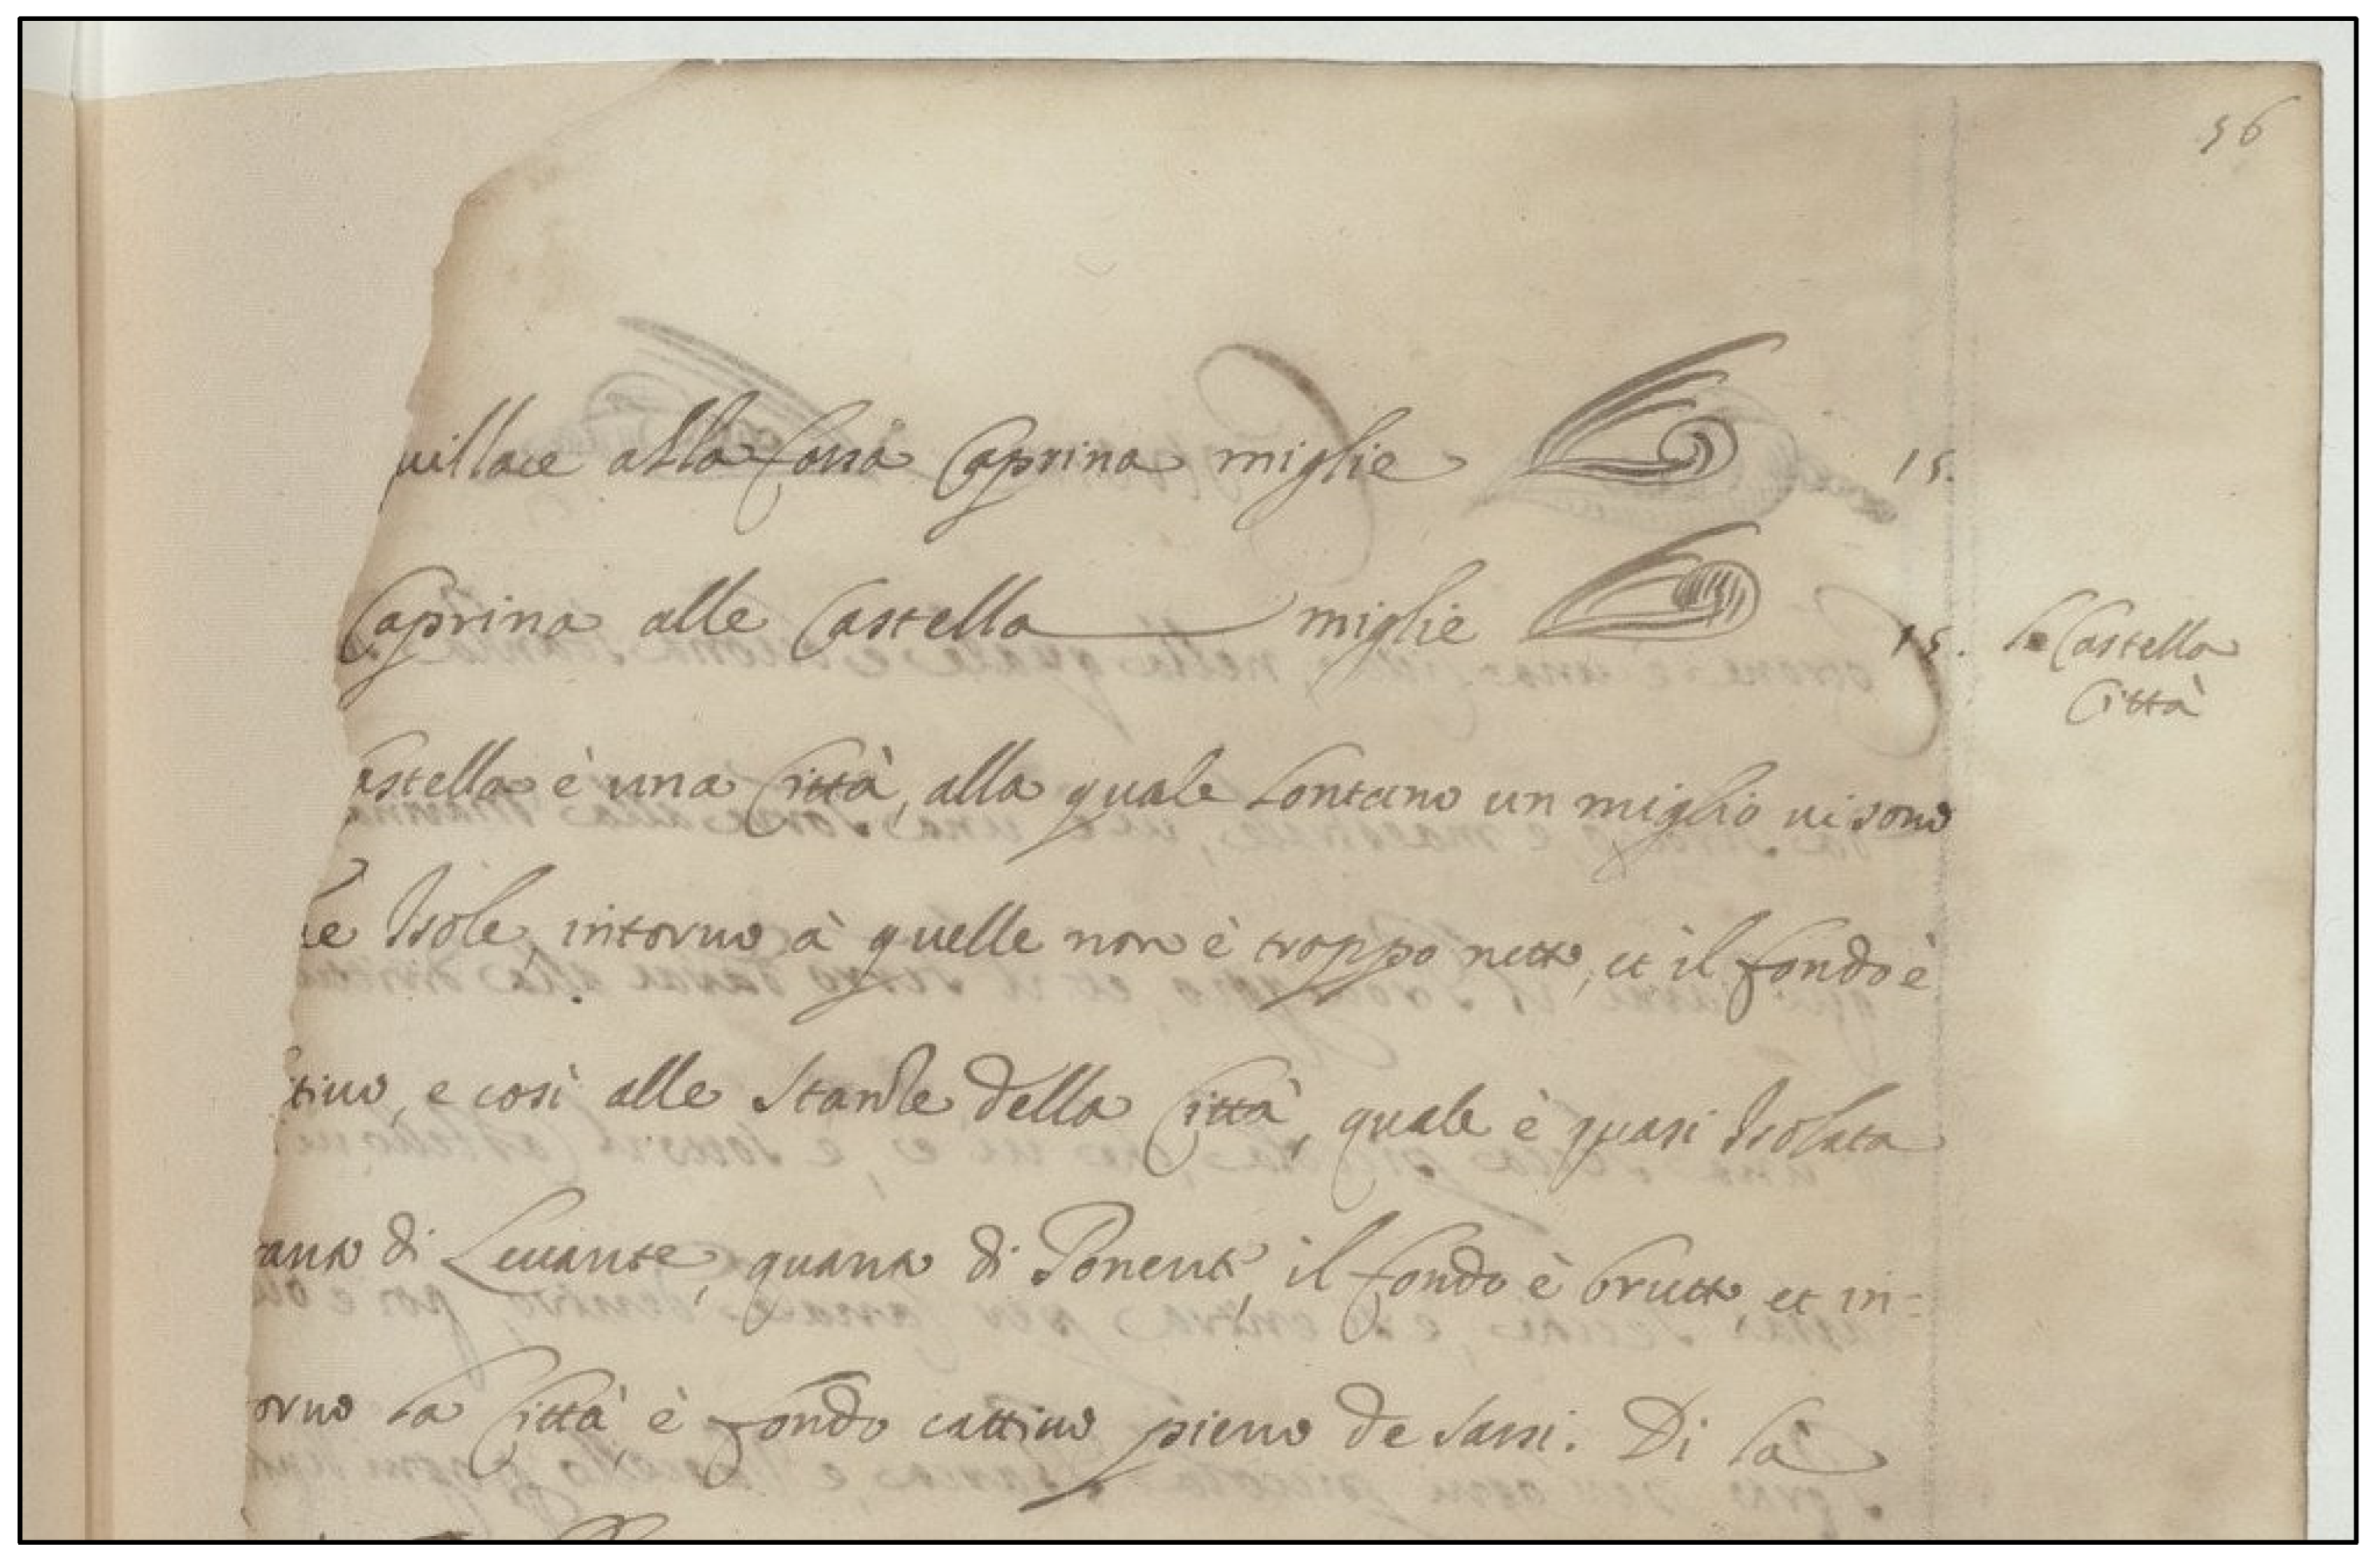 56
uillace alla fossa Caprina miglie 15.
Caprina alle Castella miglie 15.
le Castella
Città
astella è una Città, alla quale lontano un miglio ui sono
Isole, intorno à quelle non è troppo netto, et il fondo è
tiuo, e così alle stantie della Città, quale è quasi Isolata
anto di Leuante, quanto di Ponente, il fondo è brutto, et in=
orno la Città, è fondo cattiuo pieno de sassi. Di là